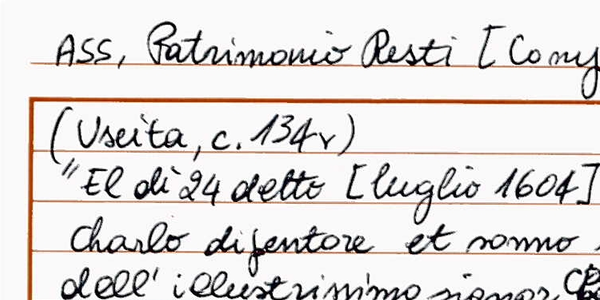 ASS, Patrimonio Resti [Cony
(Uscita, c. 134v)
"El di 24 detto [luglio 1604]
Charlo dipentore et sonno
dell'illustrissimo signor